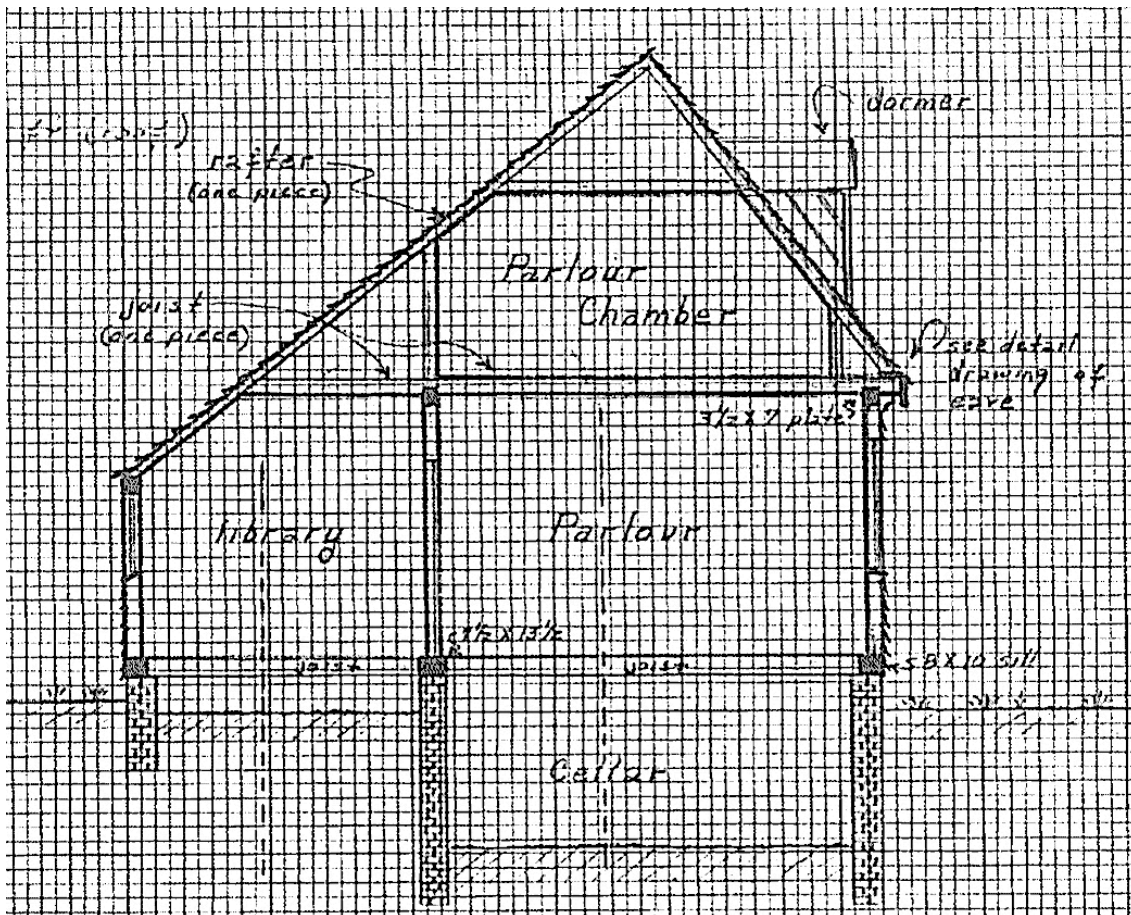 dormer
rafter
(one piece)
Parlour
Chamber
joist
(one piece)
see detail
drawing of
eave
3½ x 7 plate
library
Parlour
7½ x 13½
joist
joist
8 x 10 sill
Cellar